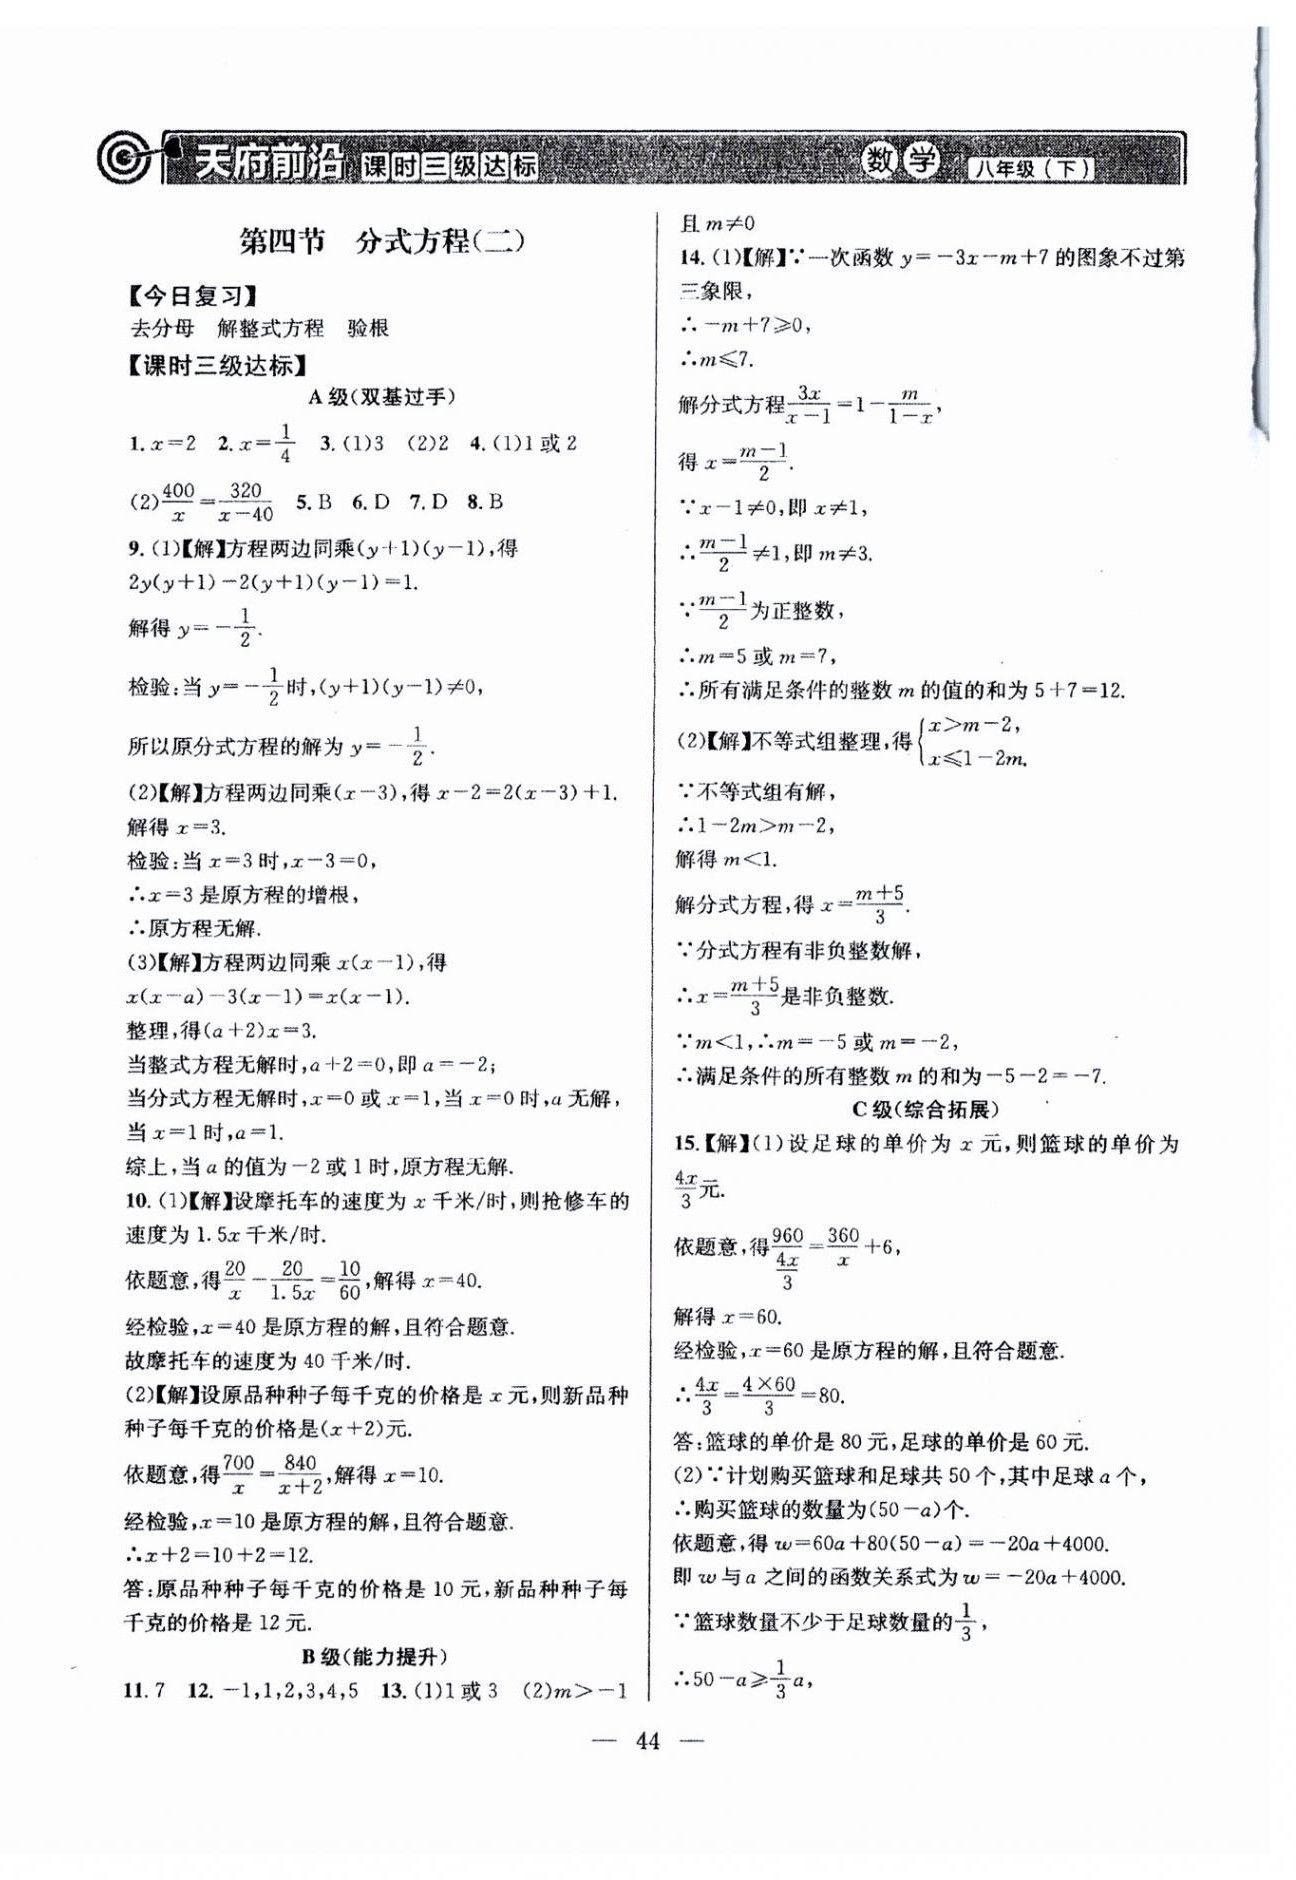 天府前沿 课时三级达标 数学 八年级(下)
第四节 分式方程(二)
【今日复习】
去分母 解整式方程 验根
【课时三级达标】
A级(双基过手)
1. x=2 2. x=1/4 3. (1)3 (2)2 4. (1)1或2
(2)400/x=320/(x-40) 5. B 6. D 7. D 8. B
9. (1)【解】方程两边同乘(y+1)(y-1),得
2y(y+1)-2(y+1)(y-1)=1.
解得 y=-1/2.
检验:当 y=-1/2时,(y+1)(y-1)≠0,
所以原分式方程的解为 y=-1/2.
(2)【解】方程两边同乘(x-3),得 x-2=2(x-3)+1.
解得 x=3.
检验:当 x=3时,x-3=0,
∴x=3是原方程的增根,
∴原方程无解.
(3)【解】方程两边同乘 x(x-1),得
x(x-a)-3(x-1)=x(x-1).
整理,得(a+2)x=3.
当整式方程无解时,a+2=0,即 a=-2;
当分式方程无解时,x=0或 x=1,当 x=0时,a无解,
当 x=1时,a=1.
综上,当 a 的值为-2或1时,原方程无解.
10. (1)【解】设摩托车的速度为 x 千米/时,则抢修车的
速度为1.5x千米/时.
依题意,得20/x-20/1.5x=10/60,解得 x=40.
经检验,x=40是原方程的解,且符合题意.
故摩托车的速度为40千米/时.
(2)【解】设原品种种子每千克的价格是 x 元,则新品种
种子每千克的价格是(x+2)元.
依题意,得700/x=840/(x+2),解得 x=10.
经检验,x=10是原方程的解,且符合题意.
∴x+2=10+2=12.
答:原品种种子每千克的价格是10元,新品种种子每
千克的价格是12元.
B级(能力提升)
11. 7 12. -1,1,2,3,4,5 13. (1)1或3 (2)m>-1
且 m≠0
14. (1)【解】∵一次函数 y=-3x-m+7的图象不过第
三象限,
∴-m+7≥0,
∴m≤7.
解分式方程3x/(x-1)=1-m/(1-x),
得 x=(m-1)/2.
∵x-1≠0,即 x≠1,
∴(m-1)/2≠1,即 m≠3.
∵(m-1)/2为正整数,
∴m=5或 m=7,
∴所有满足条件的整数 m 的值的和为5+7=12.
(2)【解】不等式组整理,得{x>m-2,
x≤1-2m.
∵不等式组有解,
∴1-2m>m-2,
解得 m<1.
解分式方程,得 x=(m+5)/3.
∵分式方程有非负整数解,
∴x=(m+5)/3是非负整数.
∵m<1,∴m=-5或 m=-2,
∴满足条件的所有整数 m 的和为-5-2=-7.
C级(综合拓展)
15.【解】(1)设足球的单价为 x 元,则篮球的单价为
4x/3元.
依题意,得960/(4x/3)=360/x+6,
解得 x=60.
经检验,x=60是原方程的解,且符合题意.
∴4x/3=(4×60)/3=80.
答:篮球的单价是80元,足球的单价是60元.
(2)∵计划购买篮球和足球共50个,其中足球 a 个,
∴购买篮球的数量为(50-a)个.
依题意,得 w=60a+80(50-a)=-20a+4000.
即 w 与 a 之间的函数关系式为 w=-20a+4000.
∵篮球数量不少于足球数量的1/3,
∴50-a≥1/3a,
— 44 —